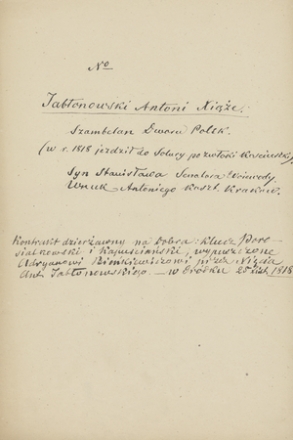 No
Jabłonowski Antoni Xiąże.
Szambelan Dworu Polsk.
(w r. 1818 jeździł do Solury po zwłoki Kościuszki)
Syn Stanisława Senatora Wojewody
Wnuk Antoniego Kaszt. Krakow.
Kontrakt dzierżawny na Dobra: klucz
i Kapuściański, wypuszczone
Adryanowi Bieńkiewiczowi przez Xięcia
Ant. Jabłonowskiego — w Gródku 25 1818